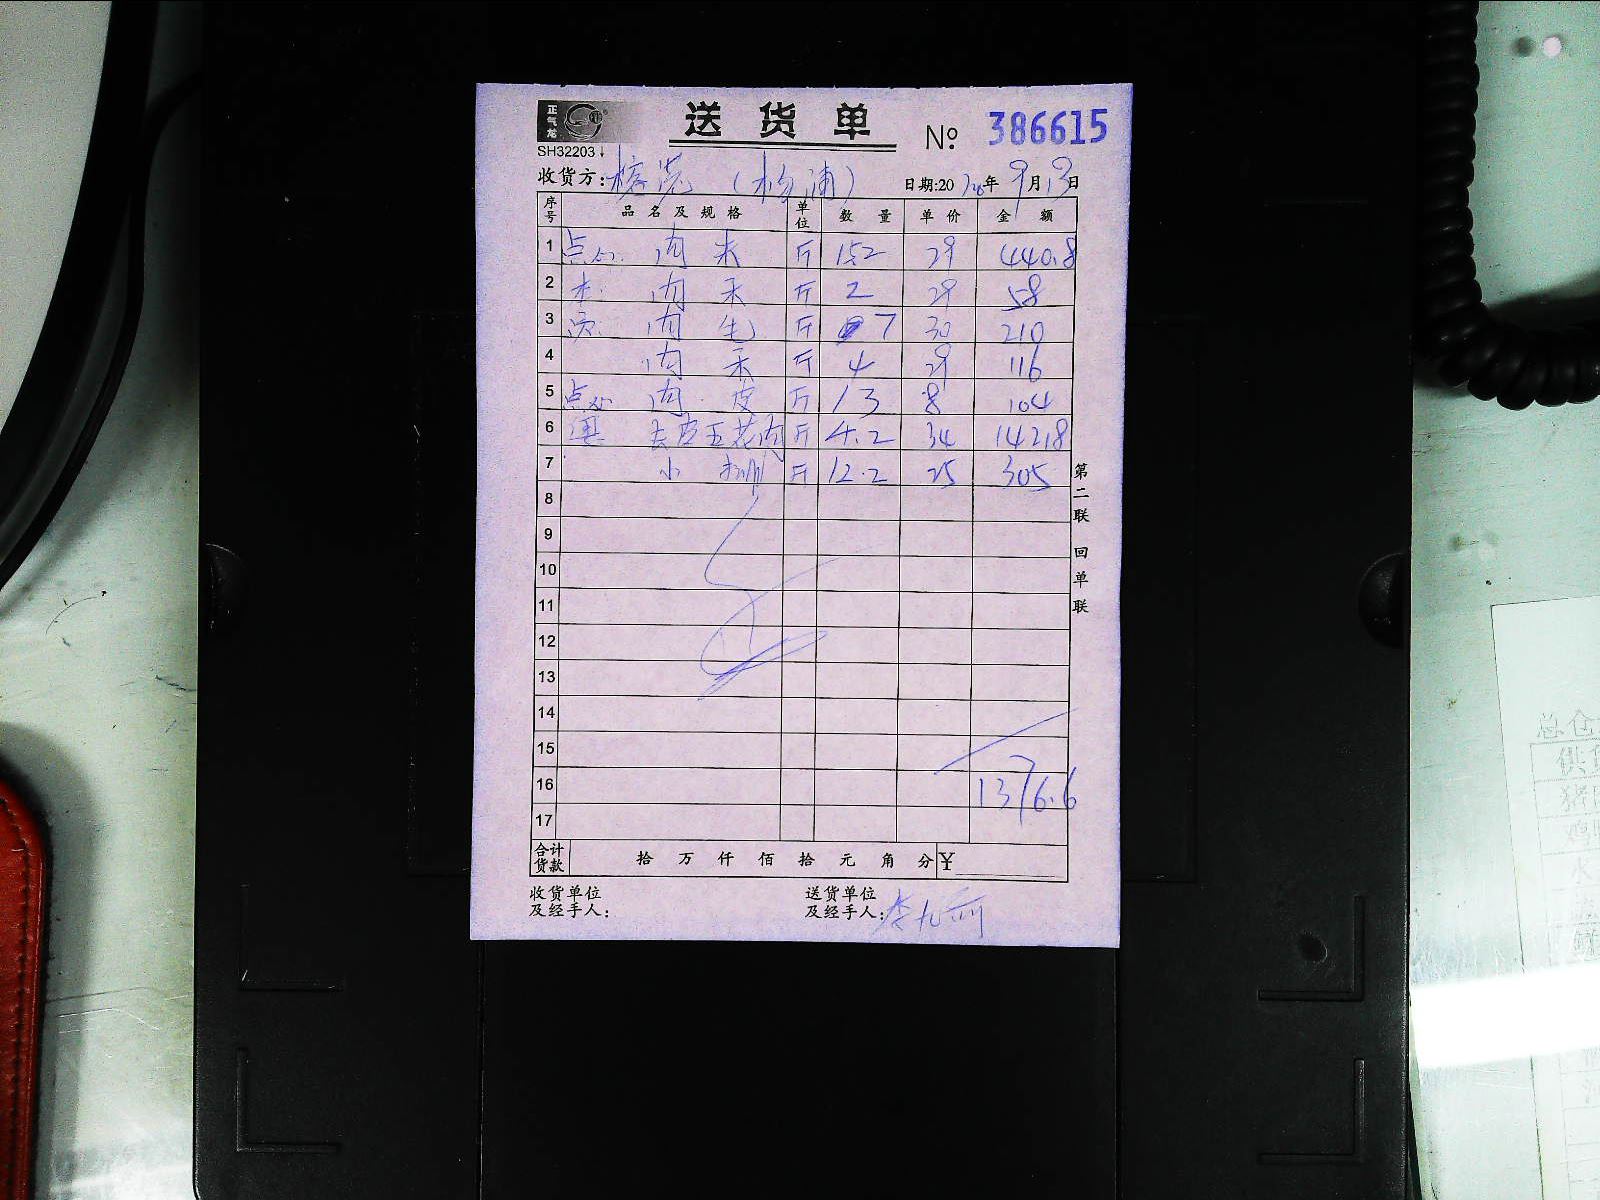 正气龙
送货单 № 386615
SH32203
收货方: (杨浦) 日期:20 年 9月13日
序号 品名及规格 单位 数量 单价 金额
1 点心 肉末 斤 15.2 29 440.8
2 肉末 斤 2 29 58
3 肉 斤 7 30 210
4 肉末 斤 4 29 116
5 点心 肉皮 斤 13 8 104
6 去皮五花肉 斤 4.2 34 142.8
7 小排 斤 12.2 25 305
8
9
10
11
12
13
14
15
16 1376.6
17
合计货款 拾 万 仟 佰 拾 元 角 分 ¥
收货单位及经手人: 送货单位及经手人:李
第二联 回单联
总仓
供货